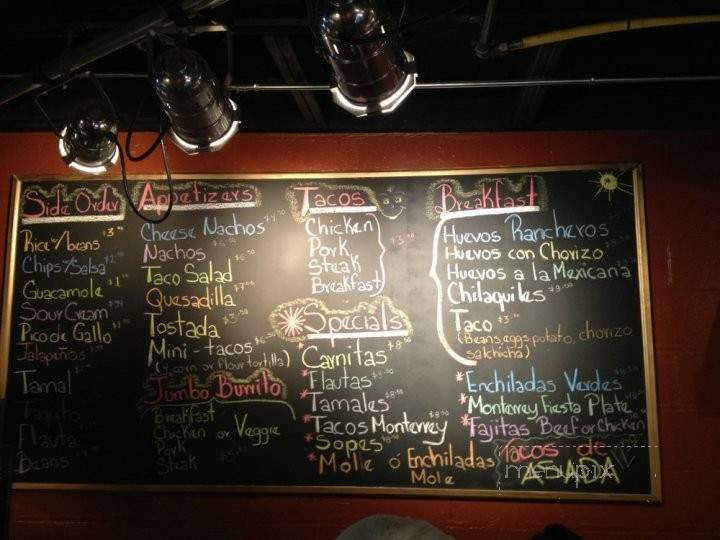 Side Order
Rice w/ beans
Chips w/ Salsa
Guacamole
Sour Cream
Pico de Gallo
Jalapeños
Tamal
Taquito
Flauta
Beans
Appetizers
Cheese Nachos
Nachos
Taco Salad
Quesadilla
Tostada
Mini-tacos
(4 corn or flour tortilla)
Jumbo Burrito
Breakfast
Chicken or Veggie
Pork
Steak
Tacos
Chicken
Pork
Steak
Breakfast
Specials
Carnitas
*Flautas
*Tamales
*Tacos Monterrey
*Sopes
*Mole ó Enchiladas
Mole
Breakfast
Huevos Rancheros
Huevos con Chorizo
Huevos a la Mexicana
Chilaquiles
Taco
(Beans, eggs, potato, chorizo
salchicha)
*Enchiladas Verdes
*Monterrey Fiesta Plate
*Fajitas Beef or Chicken
Tacos de
ASADA
menupix